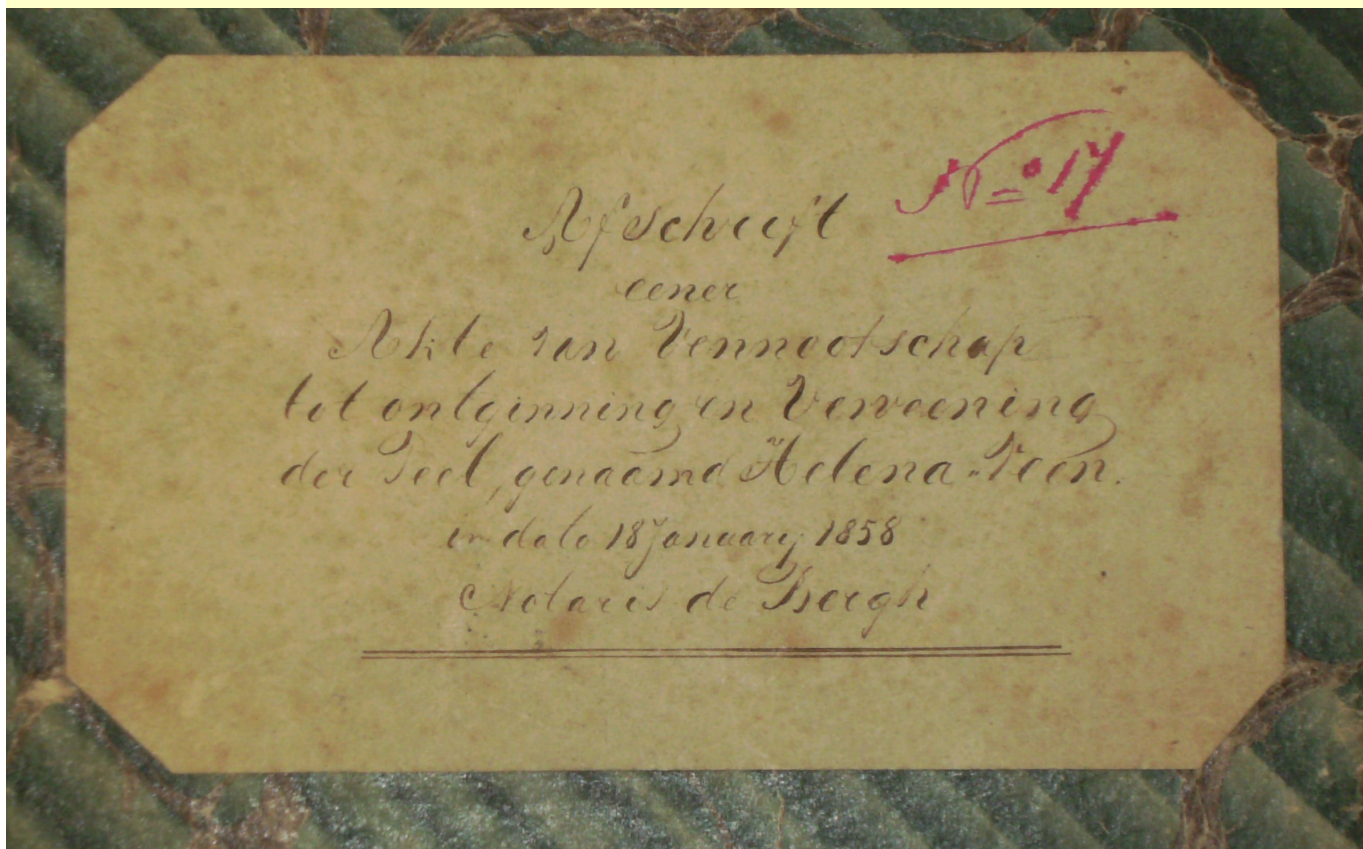 Nº 17
Afschrift
eener
Akte van Vennootschap
tot ontginning en Verveening
der Peel, genaamd Helena-Veen.
in dato 18 January 1858
Notaris de Bergh